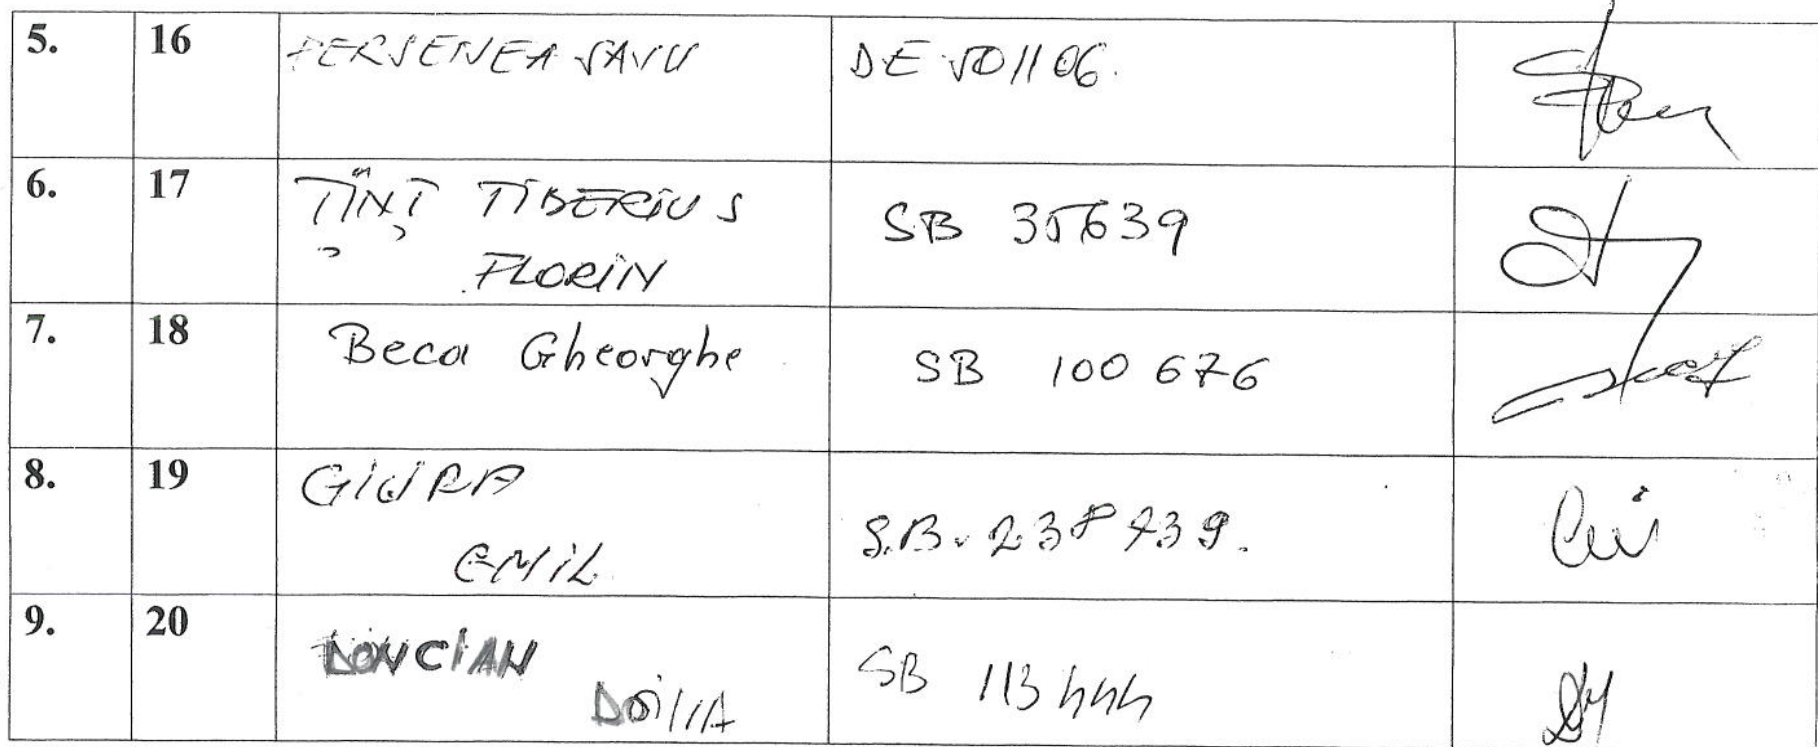 5. 16 PERSENEA SAVU DE 501106.
6. 17 ȚÎNȚ TIBERIUS SB 35639
FLORIN
7. 18 Beca Gheorghe SB 100 676
8. 19 GIURA
EMIL S.B. 238739.
9. 20 LONCIAN SB 113444
DOINA